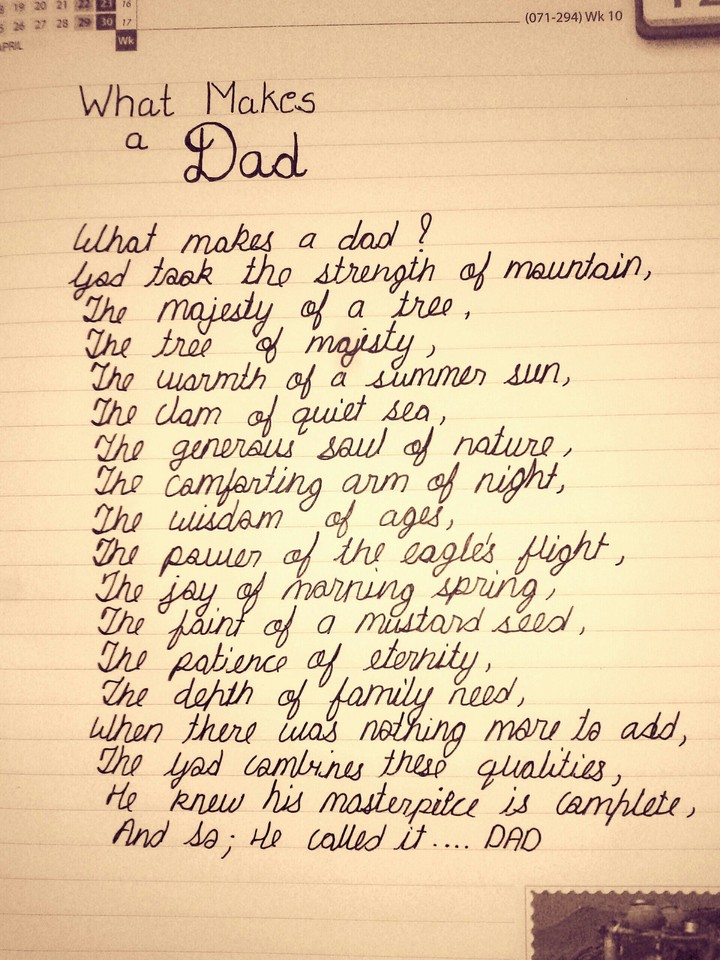 18 19 20 21 22 23 16
25 26 27 28 29 30 17
APRIL Wk
(071-294) Wk 10
What Makes
a Dad
What makes a dad ?
God took the strength of mountain,
The majesty of a tree,
The tree of majisty,
The warmth of a summer sun,
The clam of quiet sea,
The generous soul of nature,
The comforting arm of night,
The wisdom of ages,
The power of the eagle's flight,
The joy of morning spring,
The faint of a mustard seed,
The patience of eternity,
The depth of family need,
When there was nothing more to add,
The God combines these qualities,
He knew his masterpilce is complete,
And so; He called it .... DAD